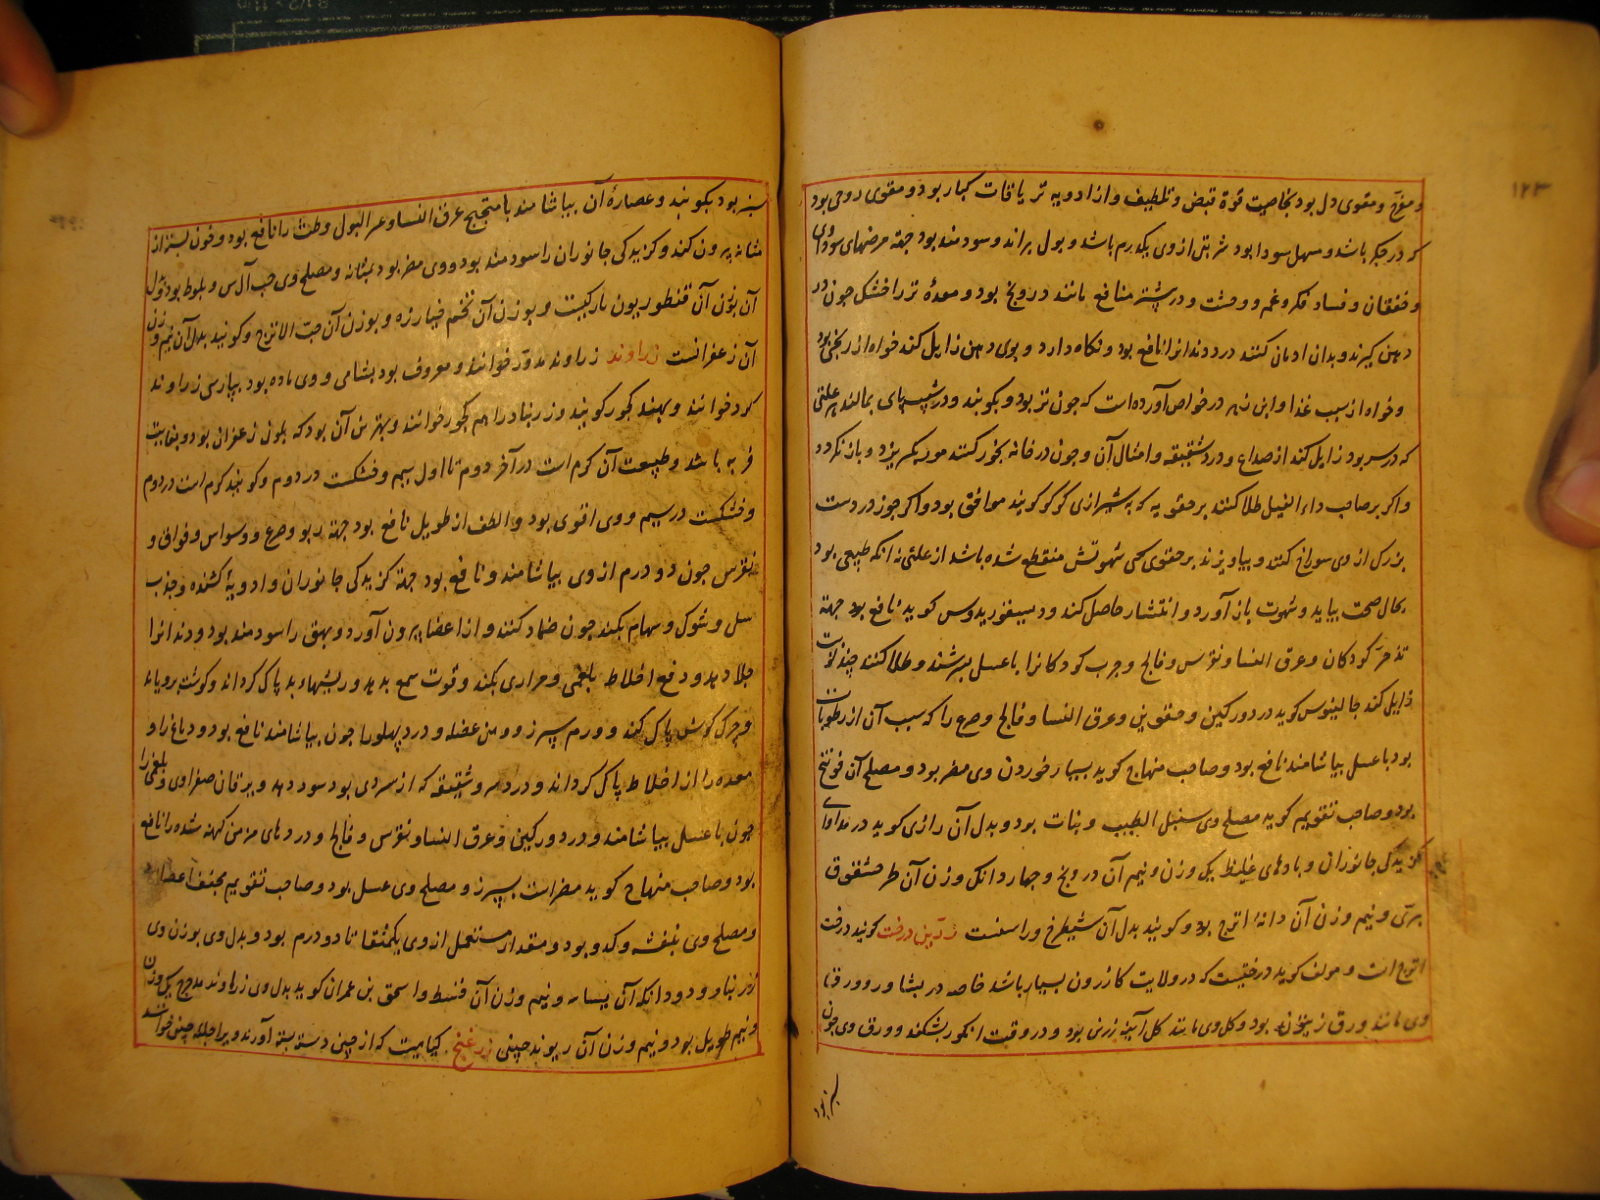 ۱۲۳
و مفرح و مقوی دل بود بخاصیت قوة قبض و تلطیف و از ادویه تریاقات کبار بود و مقوی روحی بود
که در جکر باشد و مسهل سودا بود شربتی از وی یکدرم باشد و بول براند و سودمند بود جهة مرضهای سوداوی
و خفقان و فساد فکر و غم و وحشت و در بیشتر منافع مانند درونج بود و معدهٔ تر را خشک جون در
دهن کیرند و بدان ادمان کنند درد دندانرا نافع بود و نکاه دارد و بوی دهن زایل کند خواه از ریختن بود
و خواه از سبب غذا و ابن زهر در خواص آورده است که جون تر بود و بکوبند و در شیب پای بمالند هر علتی
که در سر بود زایل کند از صداع و درد شقیقه و امثال آن و جون در خانه بخور کنند مورجه بکریزد و باز نکردد
و اکر بر صاحب داء الفیل طلا کنند بر حقویه که به شیرازی کرکر کویند موافق بود و اکر جوز درست
بزرک از وی سوراخ کنند و بیاویزند بر حقوی کسی شهوتش منقطع شده باشد از علتی نه انکه طبیعی بود
بحال صحت بیاید و شهوت باز آورد و انتشار حاصل کند و دیسقوریدوس کوید نافع بود جهة
تذحر کودکان و عرق النسا و نقرس و فالج و جرب کودکانرا با عسل بسرشند و طلا کنند چند نوبت
زایل کند جالینوس کوید درد ورکین و حقوین و عرق النسا و فالج و صرع را که سبب آن از رطوبات
بود با عسل بیاشامند نافع بود و صاحب منهاج کوید بسیار خوردن وی مضر بود و مصلح آن فوتنج
بود و صاحب تقویم کوید مصلح وی سنبل الطیب و نبات بود و بدل آن رازی کوید در مداوای
کزیدکی جانوران و بادهای غلیظ یک وزن و نیم آن درونج و جهار دانک وزن آن طرخشقوق
بری و نیم وزن آن دانهٔ اترج بود و کویند بدل آن شیطرج و راسنست زرین درخت کویند درخت
اترج است و مولف کوید درختیست که در ولایت کازرون بسیار باشد خاصه در بشاور و ورق
وی مانند ورق زیتون بود و کل وی مانند کل آبینه زرین بود و در وقت انکور بشکند و ورق وی جون
بز بود
سبز بود بکوبند و عصارهٔ آن بیاشامند با میبختج عرق النسا و عسر البول و طمث را نافع بود و خون بسته از
مثانه بیرون کند و کزیدکی جانوران را سودمند بود و وی مضر بود بمثانه و مصلح وی حب الآس و بلوط بود و بدل
آن بوزن آن قنطوریون باریکست و بوزن آن تخم خیارزه و بوزن آن حب الاترج و کویند بدل آن نیم وزن
آن زعفرانست زراوند زراوند مدور خوانند و معروف بود بشامی و وی ماده بود بپارسی زراوند
کرد خوانند و بهند کجور کویند و زرنباد را هم کجور خوانند و بهترین آن بود که بلون زعفران بود و بغایت
فربه باشد و طبیعت آن کرم است در آخر دوم تا اول سیم و خشکست در دوم و کویند کرم است در دوم
و خشکست در سیم و وی اقوی بود و الطف از طویل نافع بود جهة ربو و صرع و وسواس و فواق و
نقرس جون دو درم از وی بیاشامند و نافع بود جهة کزیدکی جانوران و ادویهٔ کشنده و جذب
سل و شوک و سهام بکند جون ضماد کنند و از اعضا بیرون آورد و بهق را سودمند بود و دندانرا
جلا دهد و دفع اخلاط بلغمی و مراری بکند و قوت سمع بدهد و ریشهاء بد پاک کرداند و کوشت برویاند
و جرک کوش پاک کند و ورم سپرز و وهن عضله و درد پهلو را جون بیاشامند نافع بود و دماغ را و
معده را از اخلاط پاک کرداند و درد سر و شقیقه که از سردی بود سود دهد و یرقان صفراوی و بلغمی را
جون با عسل بیاشامند و درد ورکین و عرق النسا و نقرس و فالج و دردهای مزمن کهنه شده را نافع
بود و صاحب منهاج کوید مضر است بسپرز و مصلح وی عسل بود و صاحب تقویم مجفف اعضا
و مصلح وی بنفشه و کدو بود و مقدار مستعمل از وی یکمثقال تا دو درم بود و بدل وی بوزن وی
زرنباد و دو دانک آن بسباسه و نیم وزن آن قسط و اسحق بن عمران کوید بدل وی زراوند مدحرج یک وزن
و نیم طویل بود و نیم وزن آن ریوند چینی زرغنج کیاهیست که از چین دسته بسته آورند و برا چینی خوانند